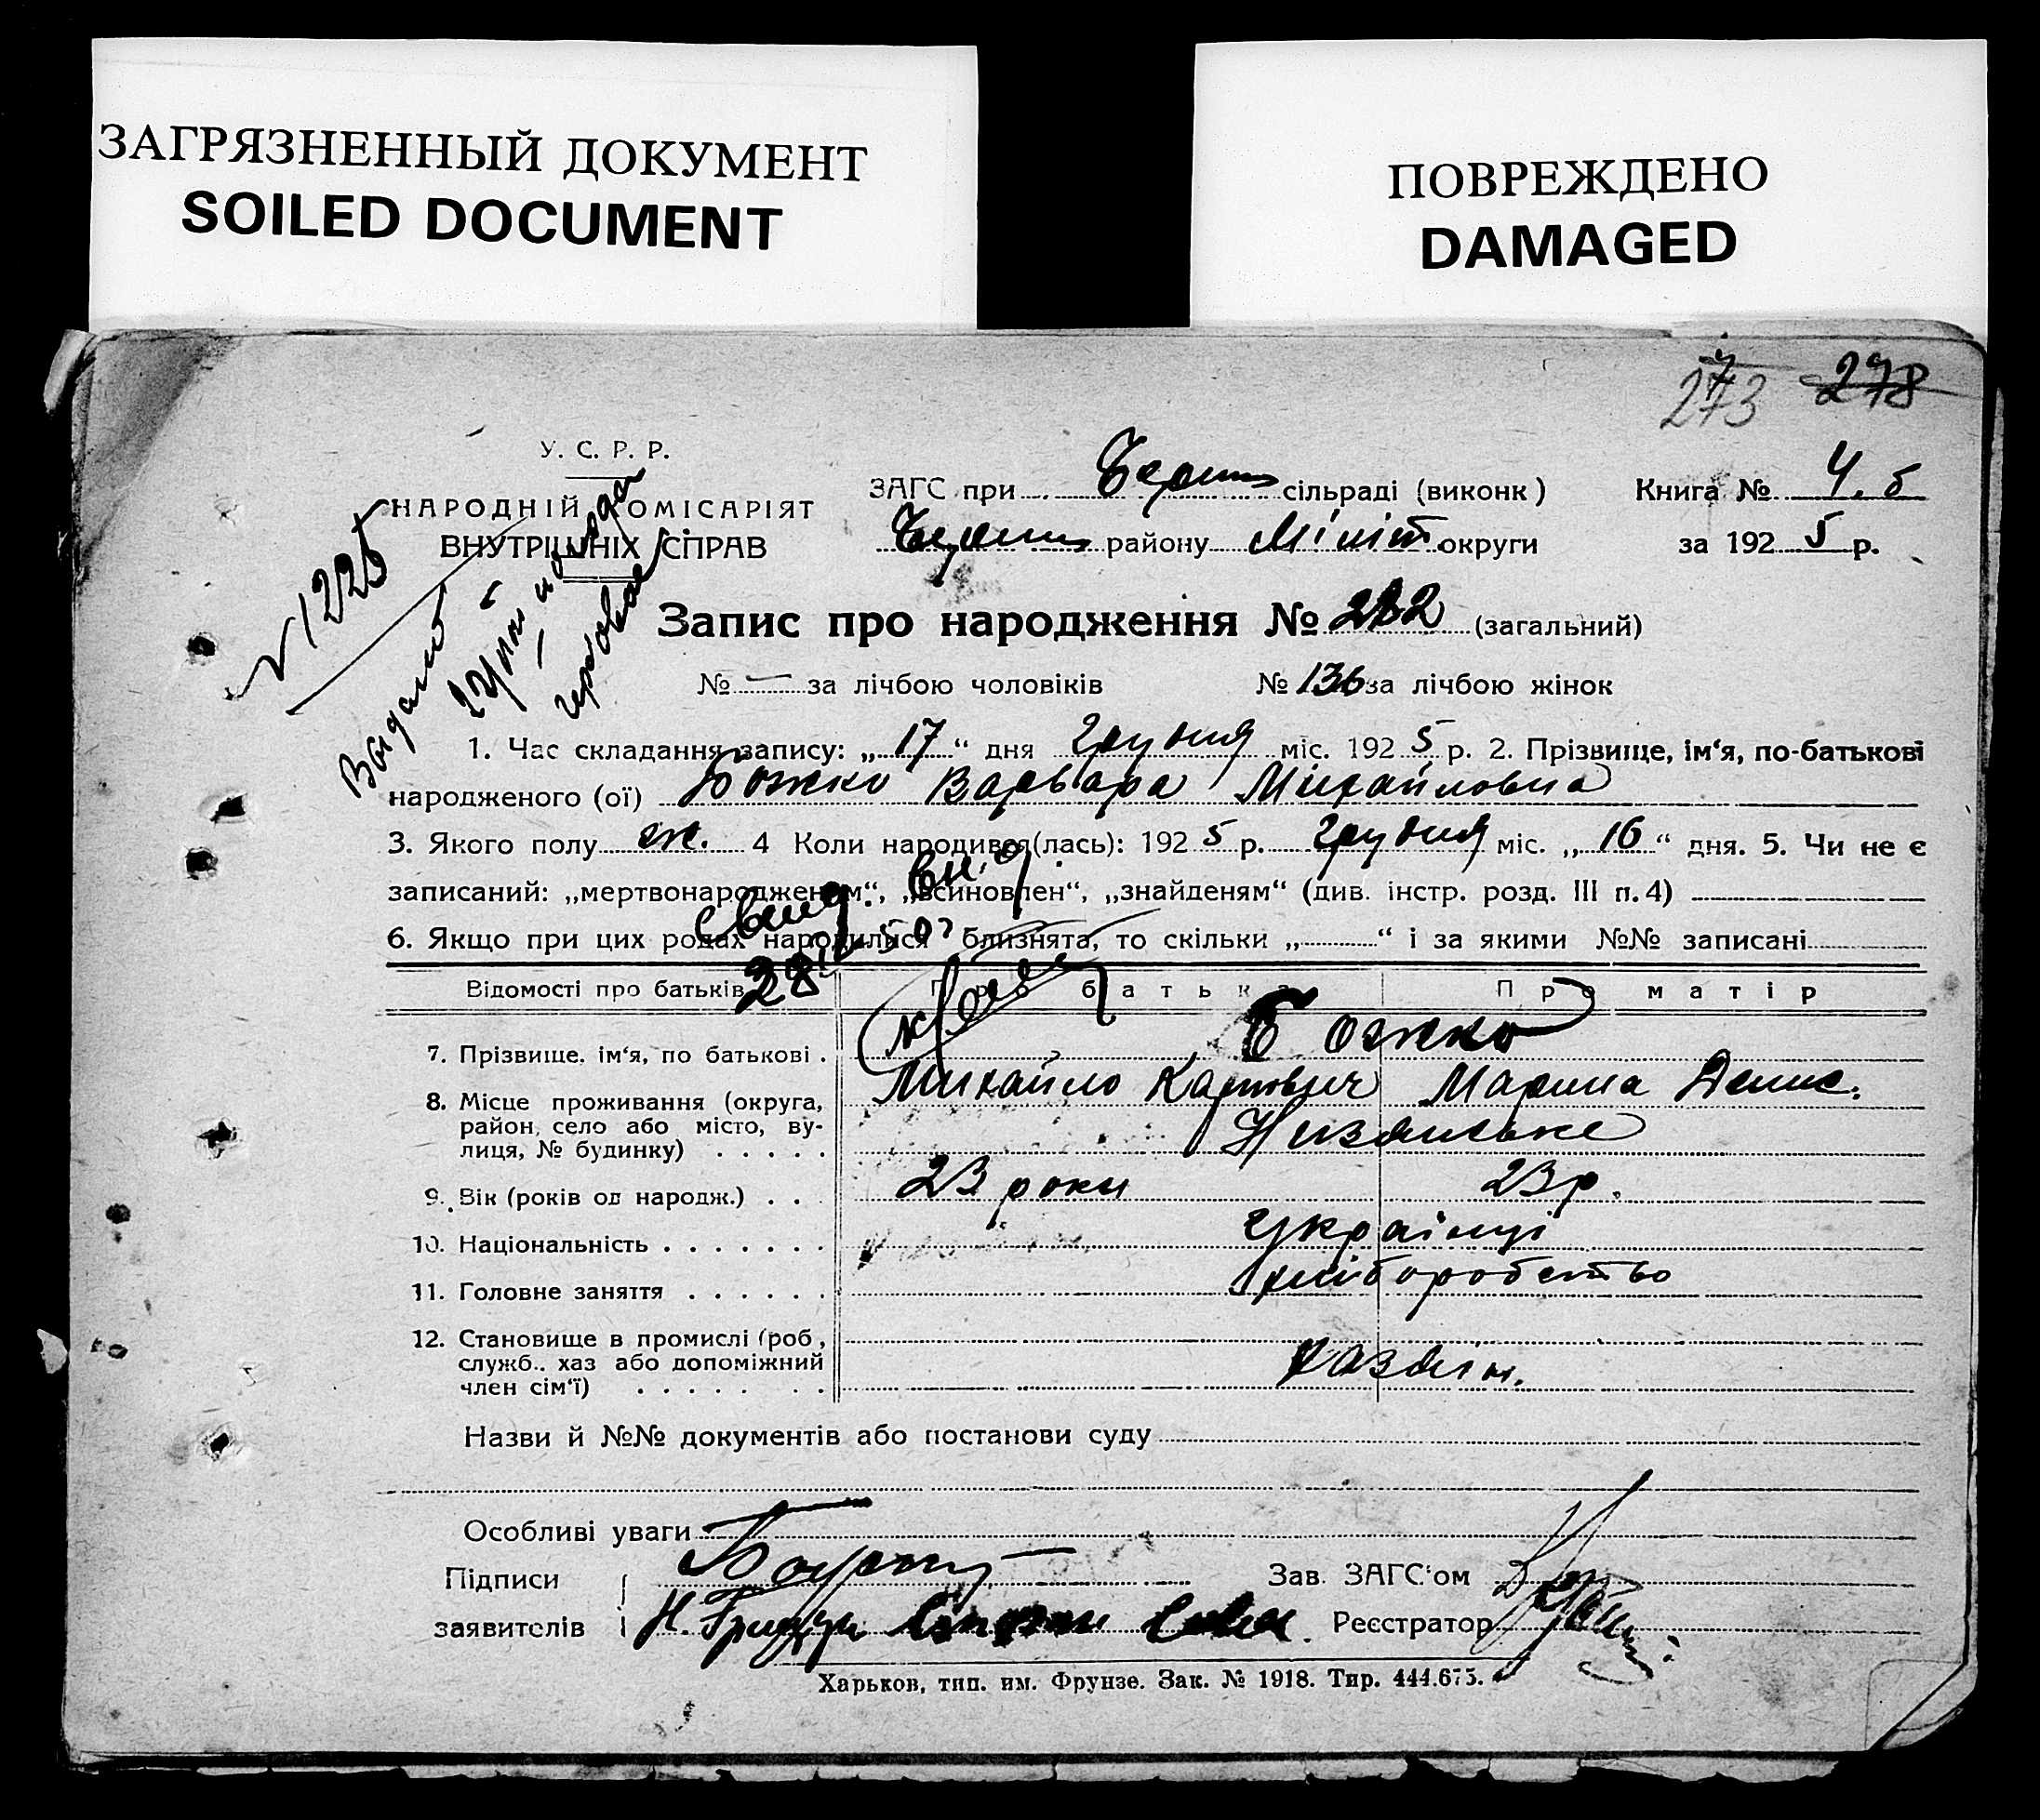 ЗАГРЯЗНЕННЫЙ ДОКУМЕНТ
SOILED DOCUMENT
ПОВРЕЖДЕНО
DAMAGED
273 278
У. С. Р. Р.
НАРОДНІЙ КОМІСАРІЯТ
ВНУТРІШНІХ СПРАВ
ЗАГС при сільраді (виконк)
Книга № 4. б
району округи
за 1925 р.
№ 1225
Запис про народження № 282 (загальний)
№ — за лічбою чоловіків № 136 за лічбою жінок
1. Час складання запису: „17“ дня Грудня міс. 1925 р. 2. Прізвище, ім‘я, по-батькові
народженого (ої) Божко Варвара Михайловна
3. Якого полу ж. 4 Коли народився(лась): 1925 р. Грудня міс. „16“ дня. 5. Чи не є
записаний: „мертвонародженям“, „всиновлен“, „знайденям“ (див. інстр. розд. III п. 4)
6. Якщо при цих родах народилися близнята, то скільки „ “ і за якими №№ записані
Відомості про батьків Про батька Про матір
7. Прізвище, ім‘я, по батькові . Божко
Михайло Карпович Марина Денис.
8. Місце проживання (округа,
район, село або місто, ву-
лиця, № будинку) . . . . .
9. Вік (років од народж.) . . . 23 роки 23 р.
10. Національність . . . . . . . Українці
11. Головне заняття . . . . . . хліборобство
12. Становище в промислі (роб,
служб., хаз або допоміжний
член сім‘ї) . . . . . . . хазяін.
Назви й №№ документів або постанови суду
Особливі уваги
Підписи
заявителів
Зав. ЗАГС‘ом
Реєстратор
Харьков, тип. им. Фрунзе. Зак. № 1918. Тир. 444.675.